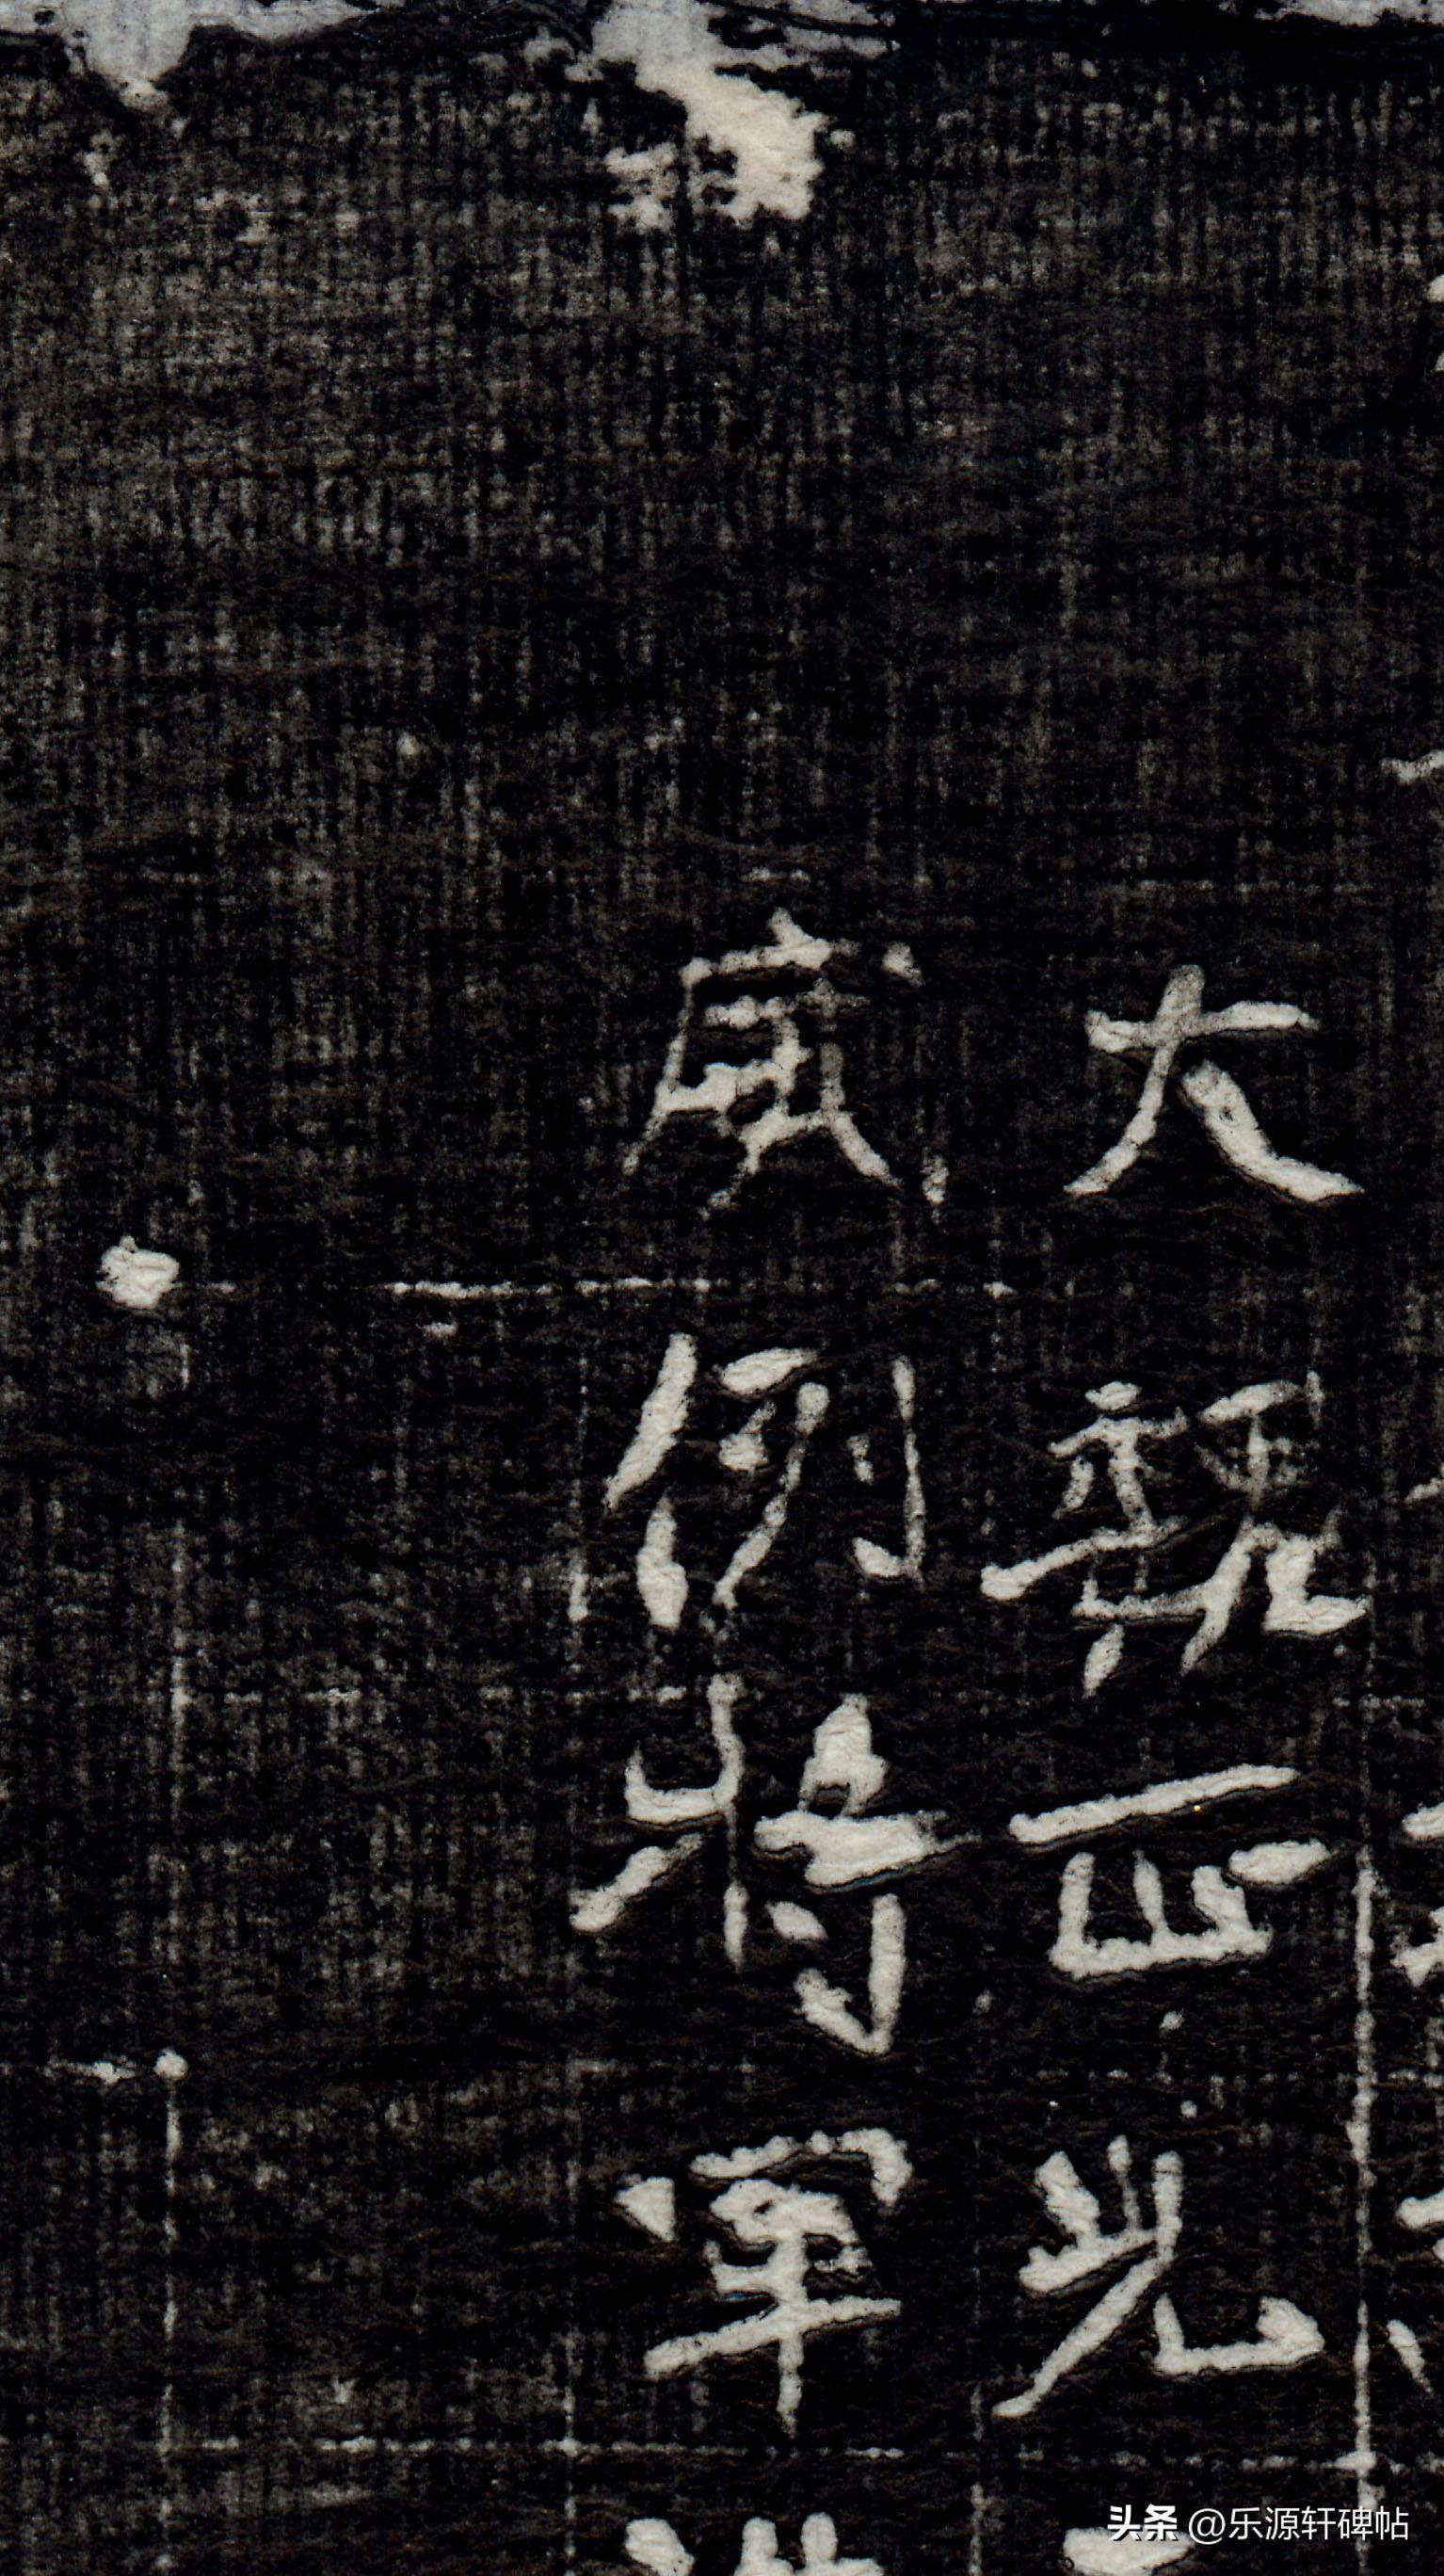 大魏正光
威例將軍
头条 @乐源轩碑帖